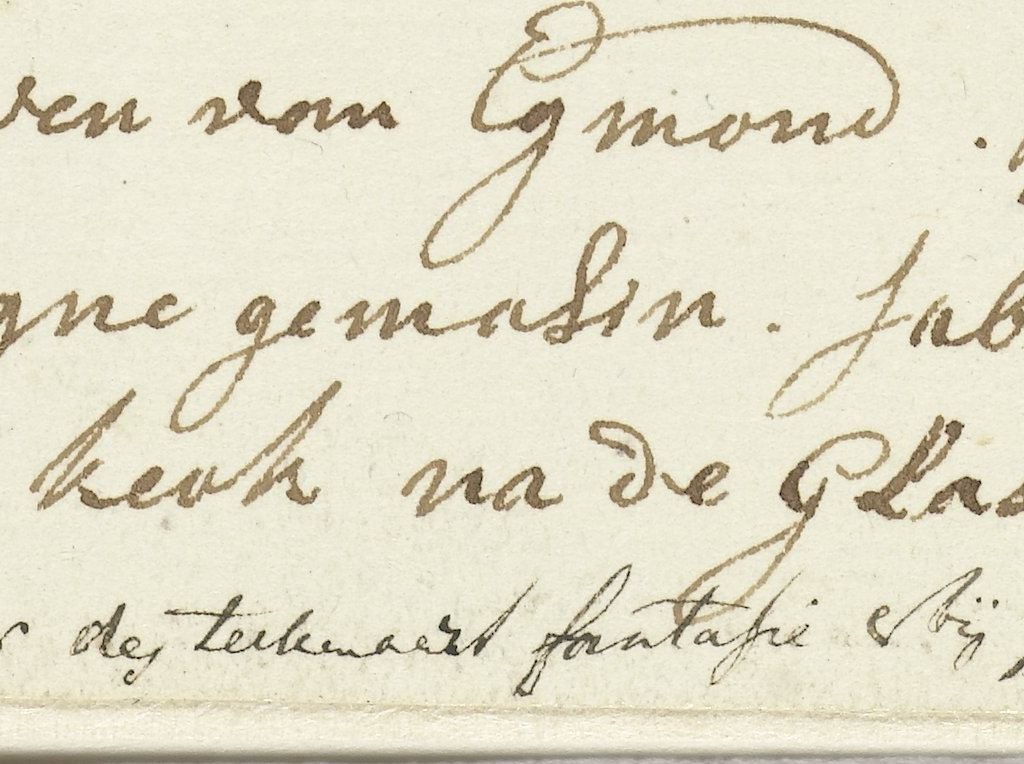 ven van Egmond .
gne gemalin . Sab
kerk na de Glas
des teekenaars fantasie er bij